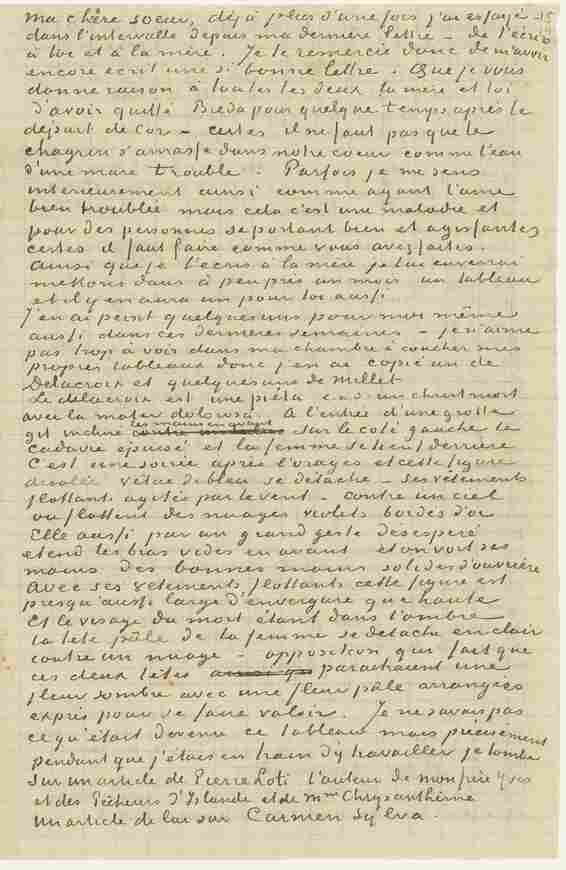 Ma chère soeur, déjà plus d'une fois j'ai essayé
dans l'intervalle depuis ma dernière lettre – de t'écrire
à toi et à la mère. Je te remercie donc de m'avoir
encore écrit une si bonne lettre. Que je vous
donne raison à toutes les deux la mère et toi
d'avoir quitté Breda pour quelque temps après le
départ de Cor – certes il ne faut pas que le
chagrin s'amasse dans notre coeur comme l'eau
d'une mare trouble. Parfois je me sens
interieurement ainsi comme ayant l'âme
bien troublée mais cela c'est une maladie et
pour des personnes se portant bien et agissantes
certes il faut faire comme vous avez faites.
Ainsi que je l'écris à la mère je lui enverrai
mettons dans à peu près un mois un tableau
et il y en aura un pour toi aussi.
J'en ai peint quelques uns pour moi même
aussi dans ces dernieres semaines – je n'aime
pas trop à voir dans ma chambre à coucher mes
propres tableaux donc j'en ai copié un de
Delacroix et quelques uns de Millet
Le delacroix est une pièta c.à.d. un christ mort
avec la mater dolorosa. A l'entrée d'une grotte
git incliné les mains en avant sur le coté gauche le
cadavre épuisé et la femme se tient derrière
C'est une soirée après l'orage et cette figure
désolée vêtue de bleu se détache – ses vêtements
flottants agités par le vent – contre un ciel
ou flottent des nuages violets bordés d'or
Elle aussi par un grand geste désesperé
etend les bras vides en avant et on voit ses
mains des bonnes mains solides d'ouvrière
Avec ses vêtements flottants cette figure est
presqu'aussi large d'envergure que haute
Et le visage du mort étant dans l'ombre
la tête pâle de la femme se détache en clair
contre un nuage – opposition qui fait que
ces deux têtes paraissent une
fleur sombre avec une fleur pâle arrangées
exprès pour se faire valoir. Je ne savais pas
ce qu'était devenu ce tableau mais précisément
pendant que j'étais en train d'y travailler je tombe
sur un article de Pierre Loti l'auteur de mon frère Yves
et des Pêcheurs d'Islande et de Mme Chrysanthème
Un article de lui sur Carmen Sylva.